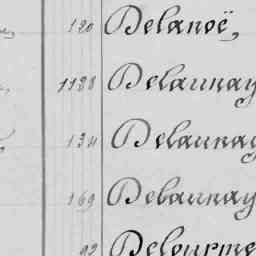 120 Delanoë,
1188 Delaunay
134 Delaunay
169 Delaunay
92 Delourme